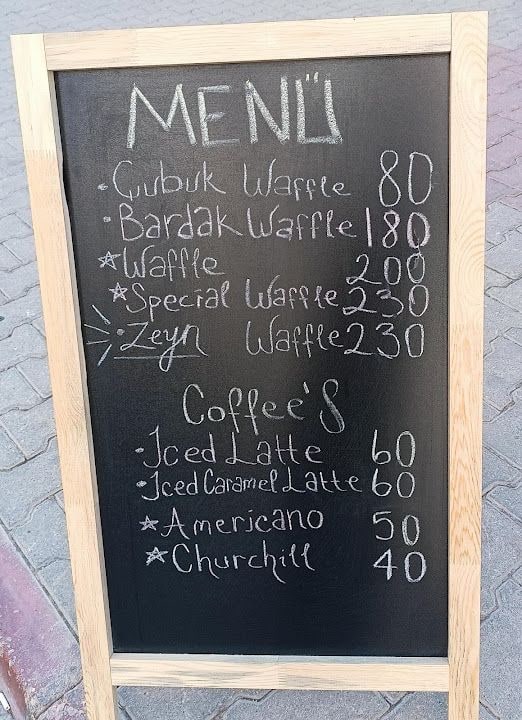 MENÜ
• Çubuk Waffle 80
• Bardak Waffle 180
☆ Waffle 200
☆ Special Waffle 230
• Zeyn Waffle 230
Coffee'S
• Iced Latte 60
• Iced Caramel Latte 60
☆ Americano 50
☆ Churchill 40